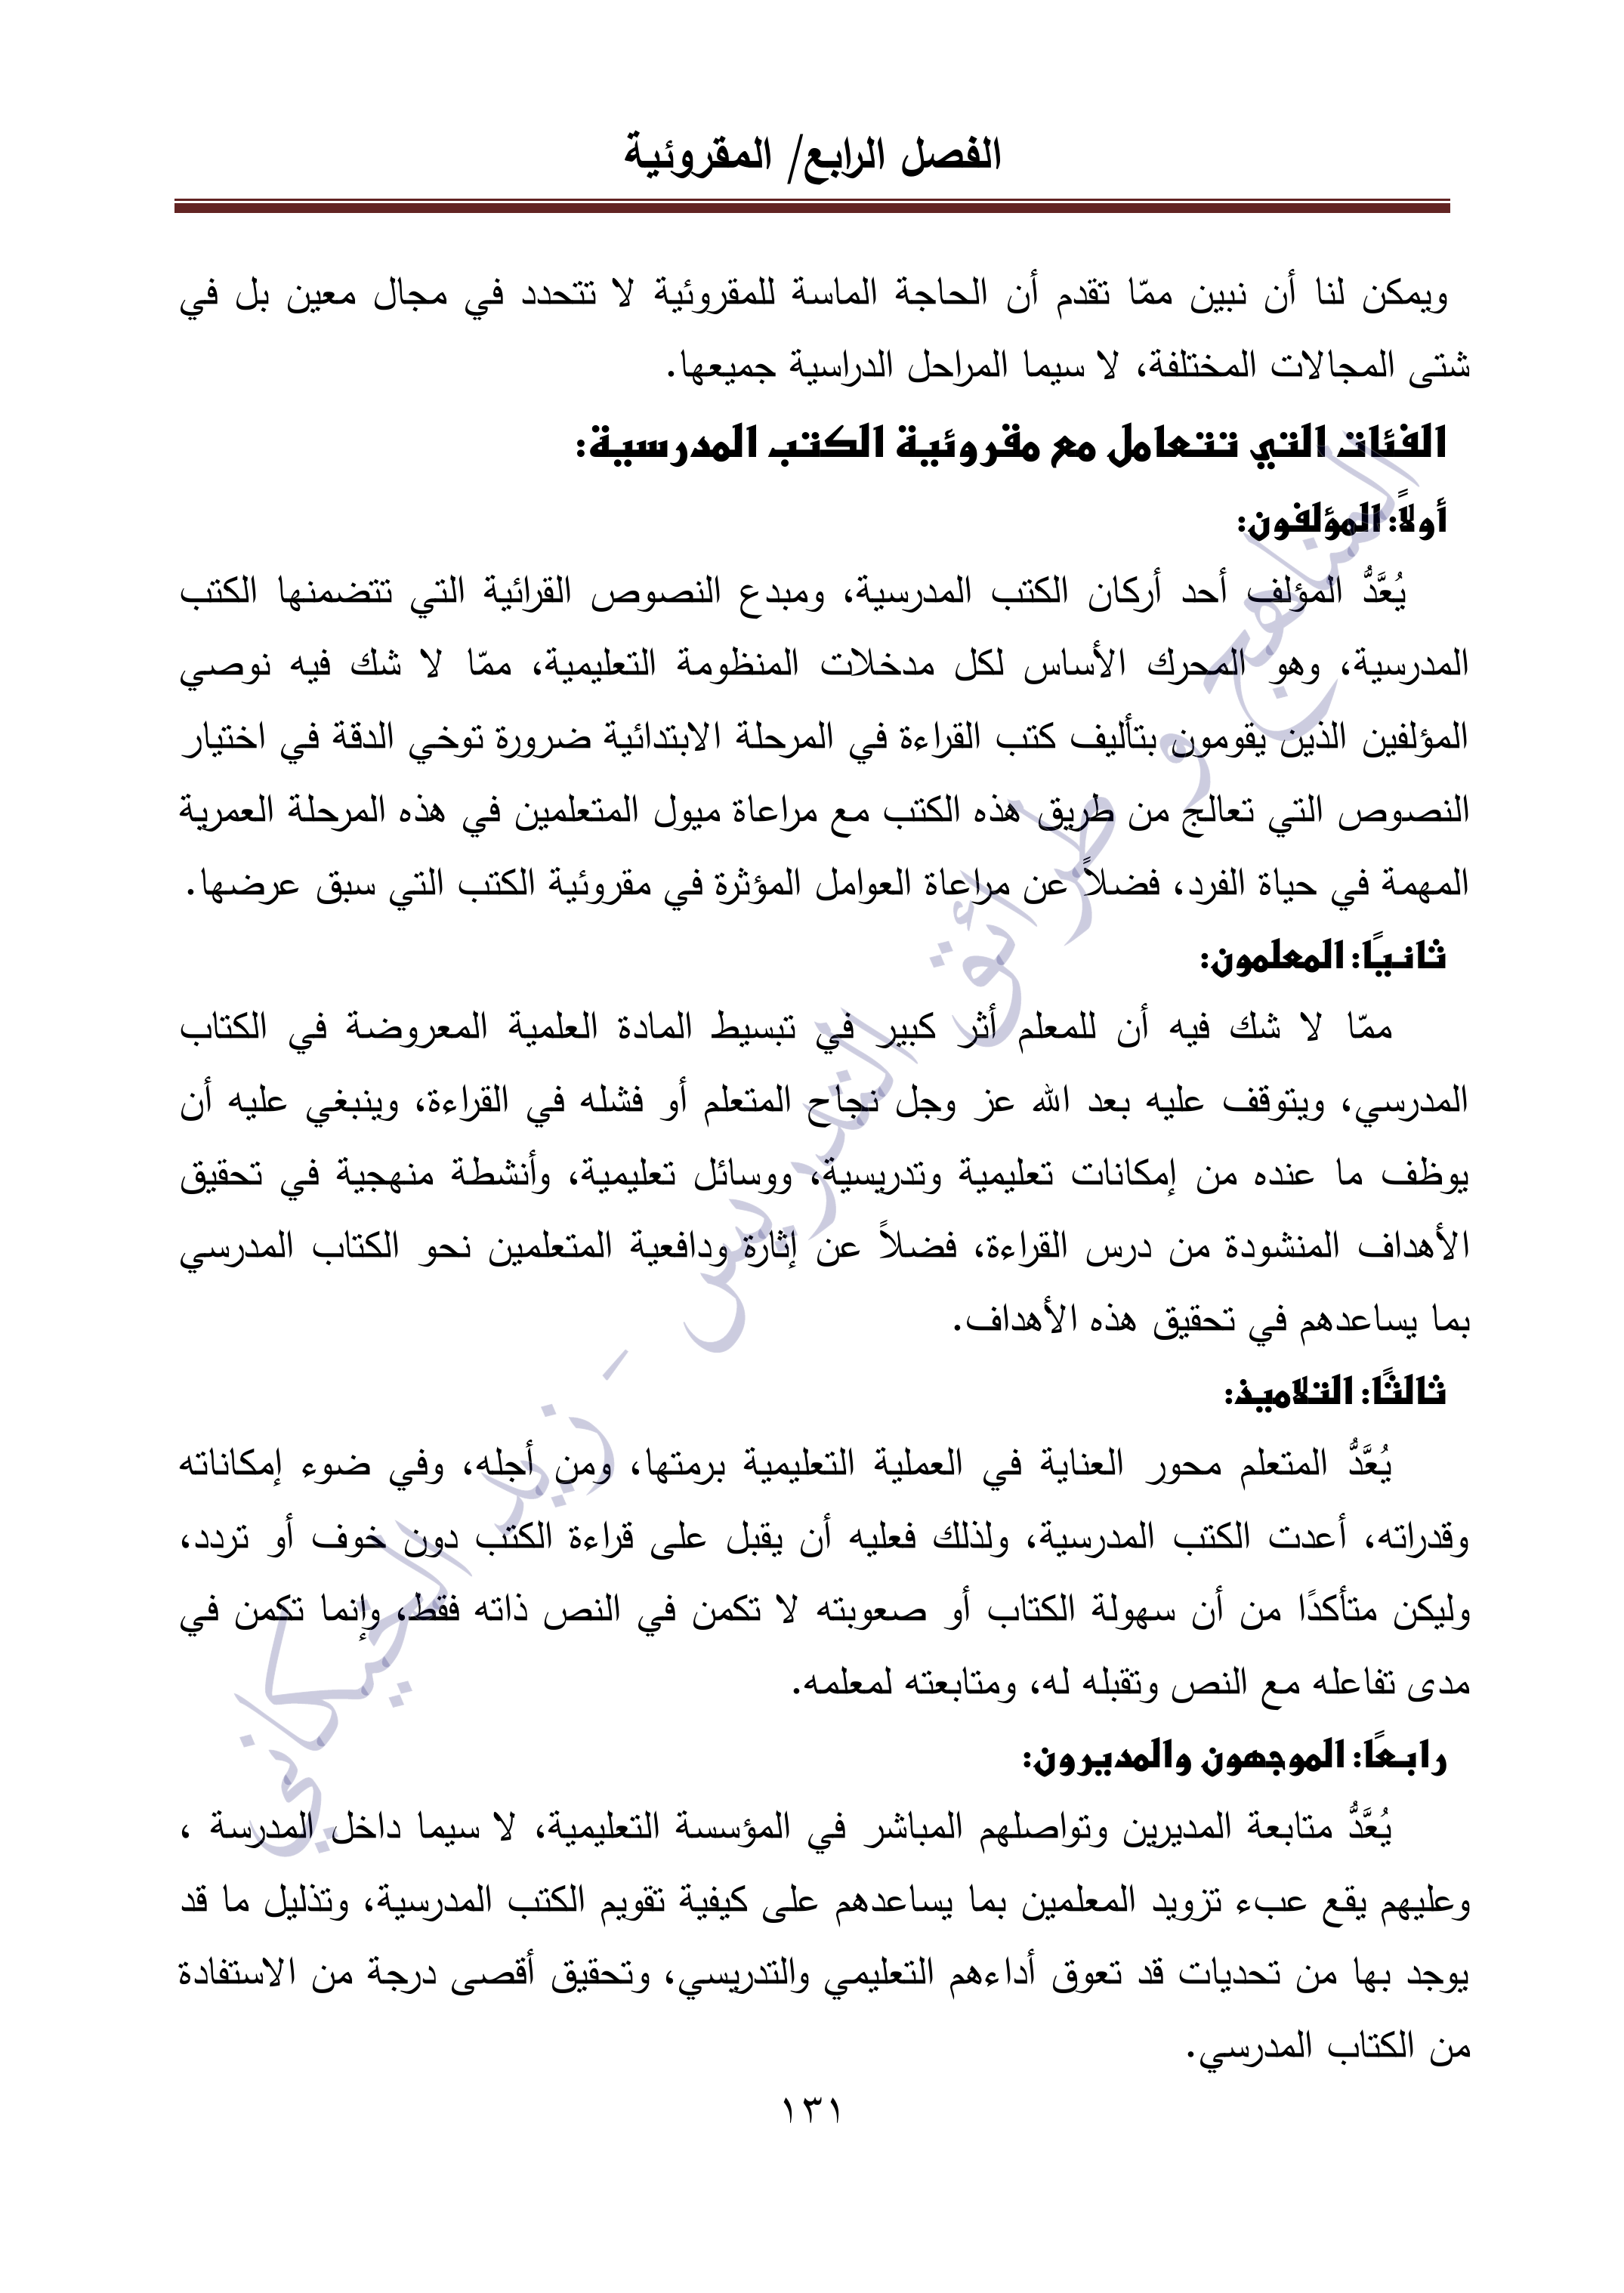 الفصل الرابع/ المقروئية
ويمكن لنا أن نبين ممّا تقدم أن الحاجة الماسة للمقروئية لا تتحدد في مجال معين بل في
شتى المجالات المختلفة، لا سيما المراحل الدراسية جميعها.
الفئات التي تتعامل مع مقروئية الكتب المدرسية:
أولاً: المؤلفون:
يُعَّدُّ المؤلف أحد أركان الكتب المدرسية، ومبدع النصوص القرائية التي تتضمنها الكتب
المدرسية، وهو المحرك الأساس لكل مدخلات المنظومة التعليمية، ممّا لا شك فيه نوصي
المؤلفين الذين يقومون بتأليف كتب القراءة في المرحلة الابتدائية ضرورة توخي الدقة في اختيار
النصوص التي تعالج من طريق هذه الكتب مع مراعاة ميول المتعلمين في هذه المرحلة العمرية
المهمة في حياة الفرد، فضلاً عن مراعاة العوامل المؤثرة في مقروئية الكتب التي سبق عرضها.
ثانيًا: المعلمون:
ممّا لا شك فيه أن للمعلم أثر كبير في تبسيط المادة العلمية المعروضة في الكتاب
المدرسي، ويتوقف عليه بعد الله عز وجل نجاح المتعلم أو فشله في القراءة، وينبغي عليه أن
يوظف ما عنده من إمكانات تعليمية وتدريسية، ووسائل تعليمية، وأنشطة منهجية في تحقيق
الأهداف المنشودة من درس القراءة، فضلاً عن إثارة ودافعية المتعلمين نحو الكتاب المدرسي
بما يساعدهم في تحقيق هذه الأهداف.
ثالثًا: التلاميذ:
يُعَّدُّ المتعلم محور العناية في العملية التعليمية برمتها، ومن أجله، وفي ضوء إمكاناته
وقدراته، أعدت الكتب المدرسية، ولذلك فعليه أن يقبل على قراءة الكتب دون خوف أو تردد،
وليكن متأكدًا من أن سهولة الكتاب أو صعوبته لا تكمن في النص ذاته فقط، وإنما تكمن في
مدى تفاعله مع النص وتقبله له، ومتابعته لمعلمه.
رابعًا: الموجهون والمديرون:
يُعَّدُّ متابعة المديرين وتواصلهم المباشر في المؤسسة التعليمية، لا سيما داخل المدرسة ،
وعليهم يقع عبء تزويد المعلمين بما يساعدهم على كيفية تقويم الكتب المدرسية، وتذليل ما قد
يوجد بها من تحديات قد تعوق أداءهم التعليمي والتدريسي، وتحقيق أقصى درجة من الاستفادة
من الكتاب المدرسي.
١٣١
المناهج و طرائق التدريس - زيد الخيكاني